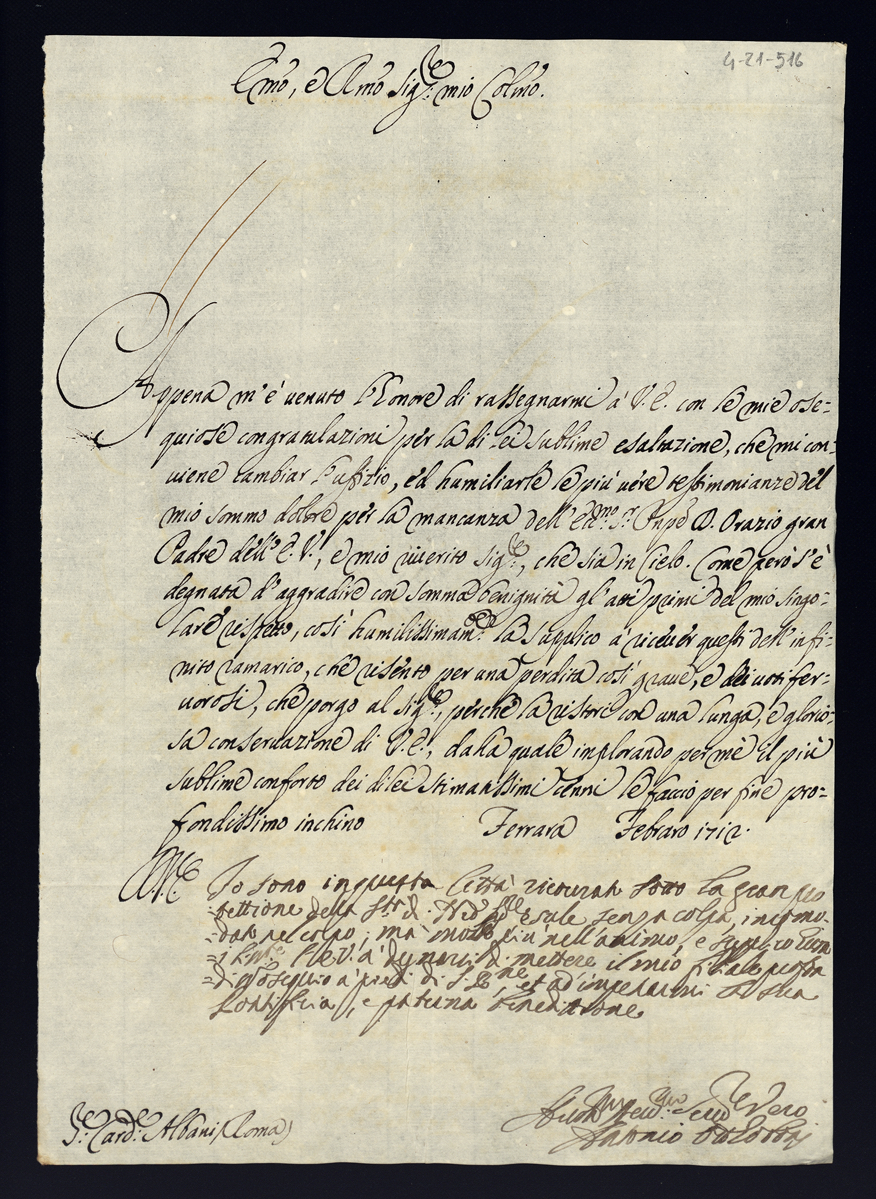 4-21-516
Emo, e Rmo Sig.re mio Colmo.
Appena m'è venuto l'honore di rassegnarmi à V.E. con le mie osse=
quiose congratulazioni per la di Lei sublime esaltazione, che mi con=
viene cambiar l'uffizio, ed humiliarle le più vere testimonianze del
mio sommo dolore per la mancanza dell' Ecc.mo S.r Pnpe D. Orazio gran
Padre dell' E.V., e mio riverito Sig.re, che sia in Cielo. Come però s'è
degnata d'aggradire con somma benignità gl'atti primi del mio singo=
lare rispetto, così humilissimam.te la supplico à ricever questi dell' infi=
nito ramarico, che risento per una perdita così grave, e dei voti fer=
vorosi, che porgo al Sig.re, perche la ristori con una lunga, e glorio=
sa conservazione di V.E., dalla quale implorando per me il più
sublime conforto dei di lei stimatissimi cenni le faccio per fine pro=
fondissimo inchino Ferrara Febraro 1712.
Io sono in questa Città ricovrato sotto la gran pro
=tettione della S.tà di N.ro Sig.re esule senza colpa, incomo=
=dato nel corpo, ma molto più nell'animo, e supplico
di mettere il mio
=di ossequio a' piedi di S. B.ne, et ad' impetrarmi la sua
Pontificia, e paterna benedizione.
S.r Card.l Albani (Roma)
Hum.mo Dev.mo Serv.re Vero
Antonio Ottoboni